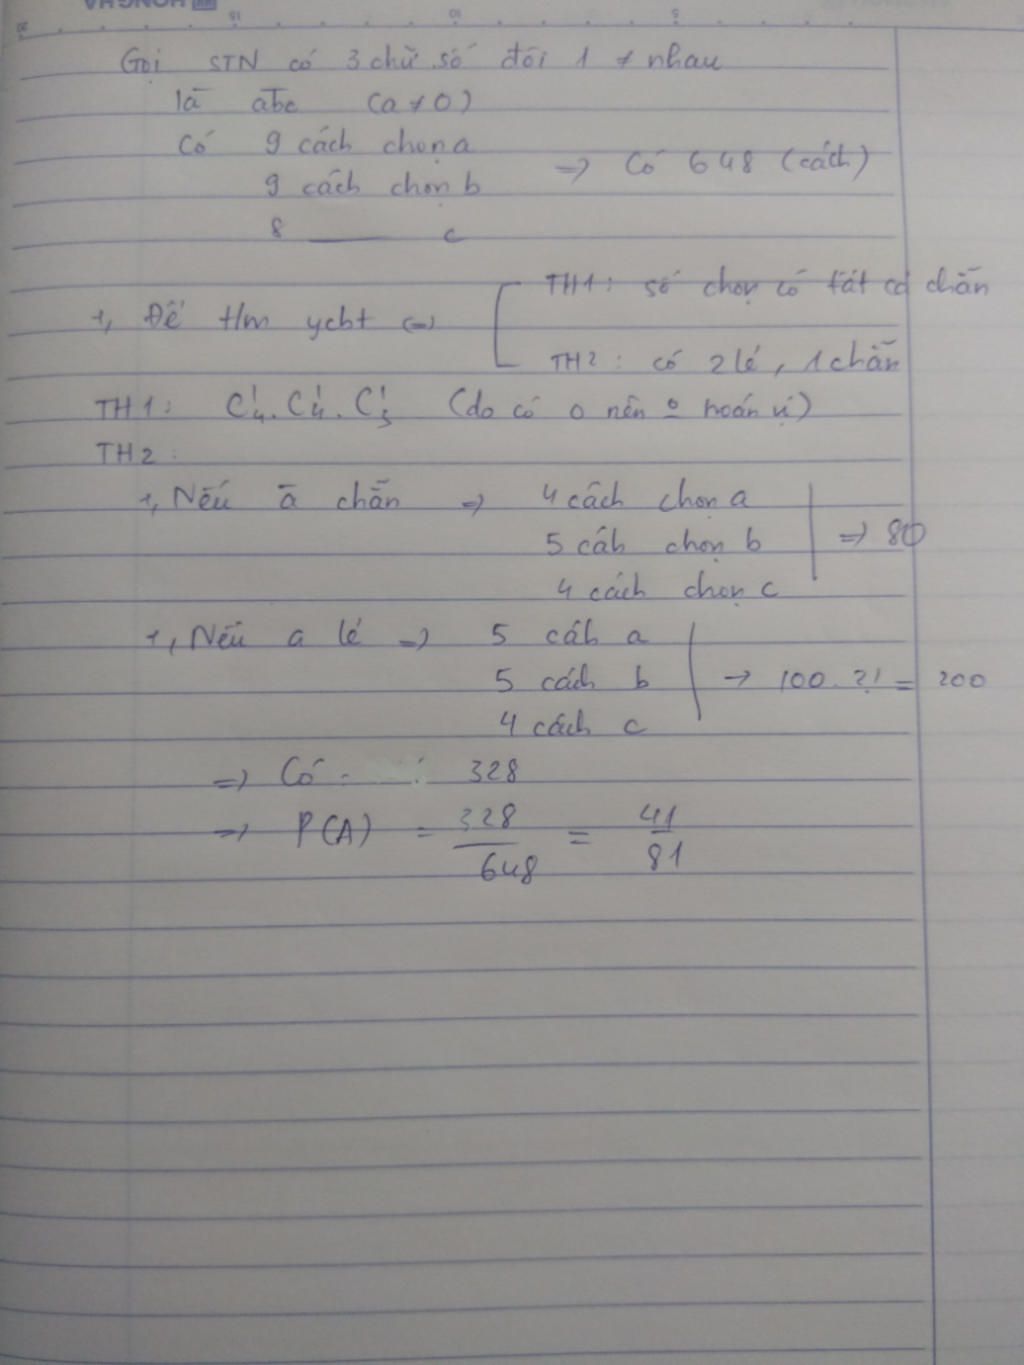 HONGHA
20 15 10 5
Gọi STN có 3 chữ số đôi 1 ≠ nhau
là abc (a ≠ 0)
Có 9 cách chọn a
9 cách chọn b => Có 648 (cách)
8 —— c
+, Để t/m ycbt <=> TH1: số chọn có tất cả chẵn
TH2: có 2 lẻ, 1 chẵn
TH1: C¹₄. C¹₄. C¹₃ (do có 0 nên o hoán vị)
TH2:
+, Nếu a chẵn => 4 cách chọn a
5 cáh chọn b => 80
4 cách chọn c
+, Nếu a lẻ => 5 cáh a
5 cách b → 100. 2! = 200
4 cách c
=> Có 328
=> P(A) = 328/648 = 41/81